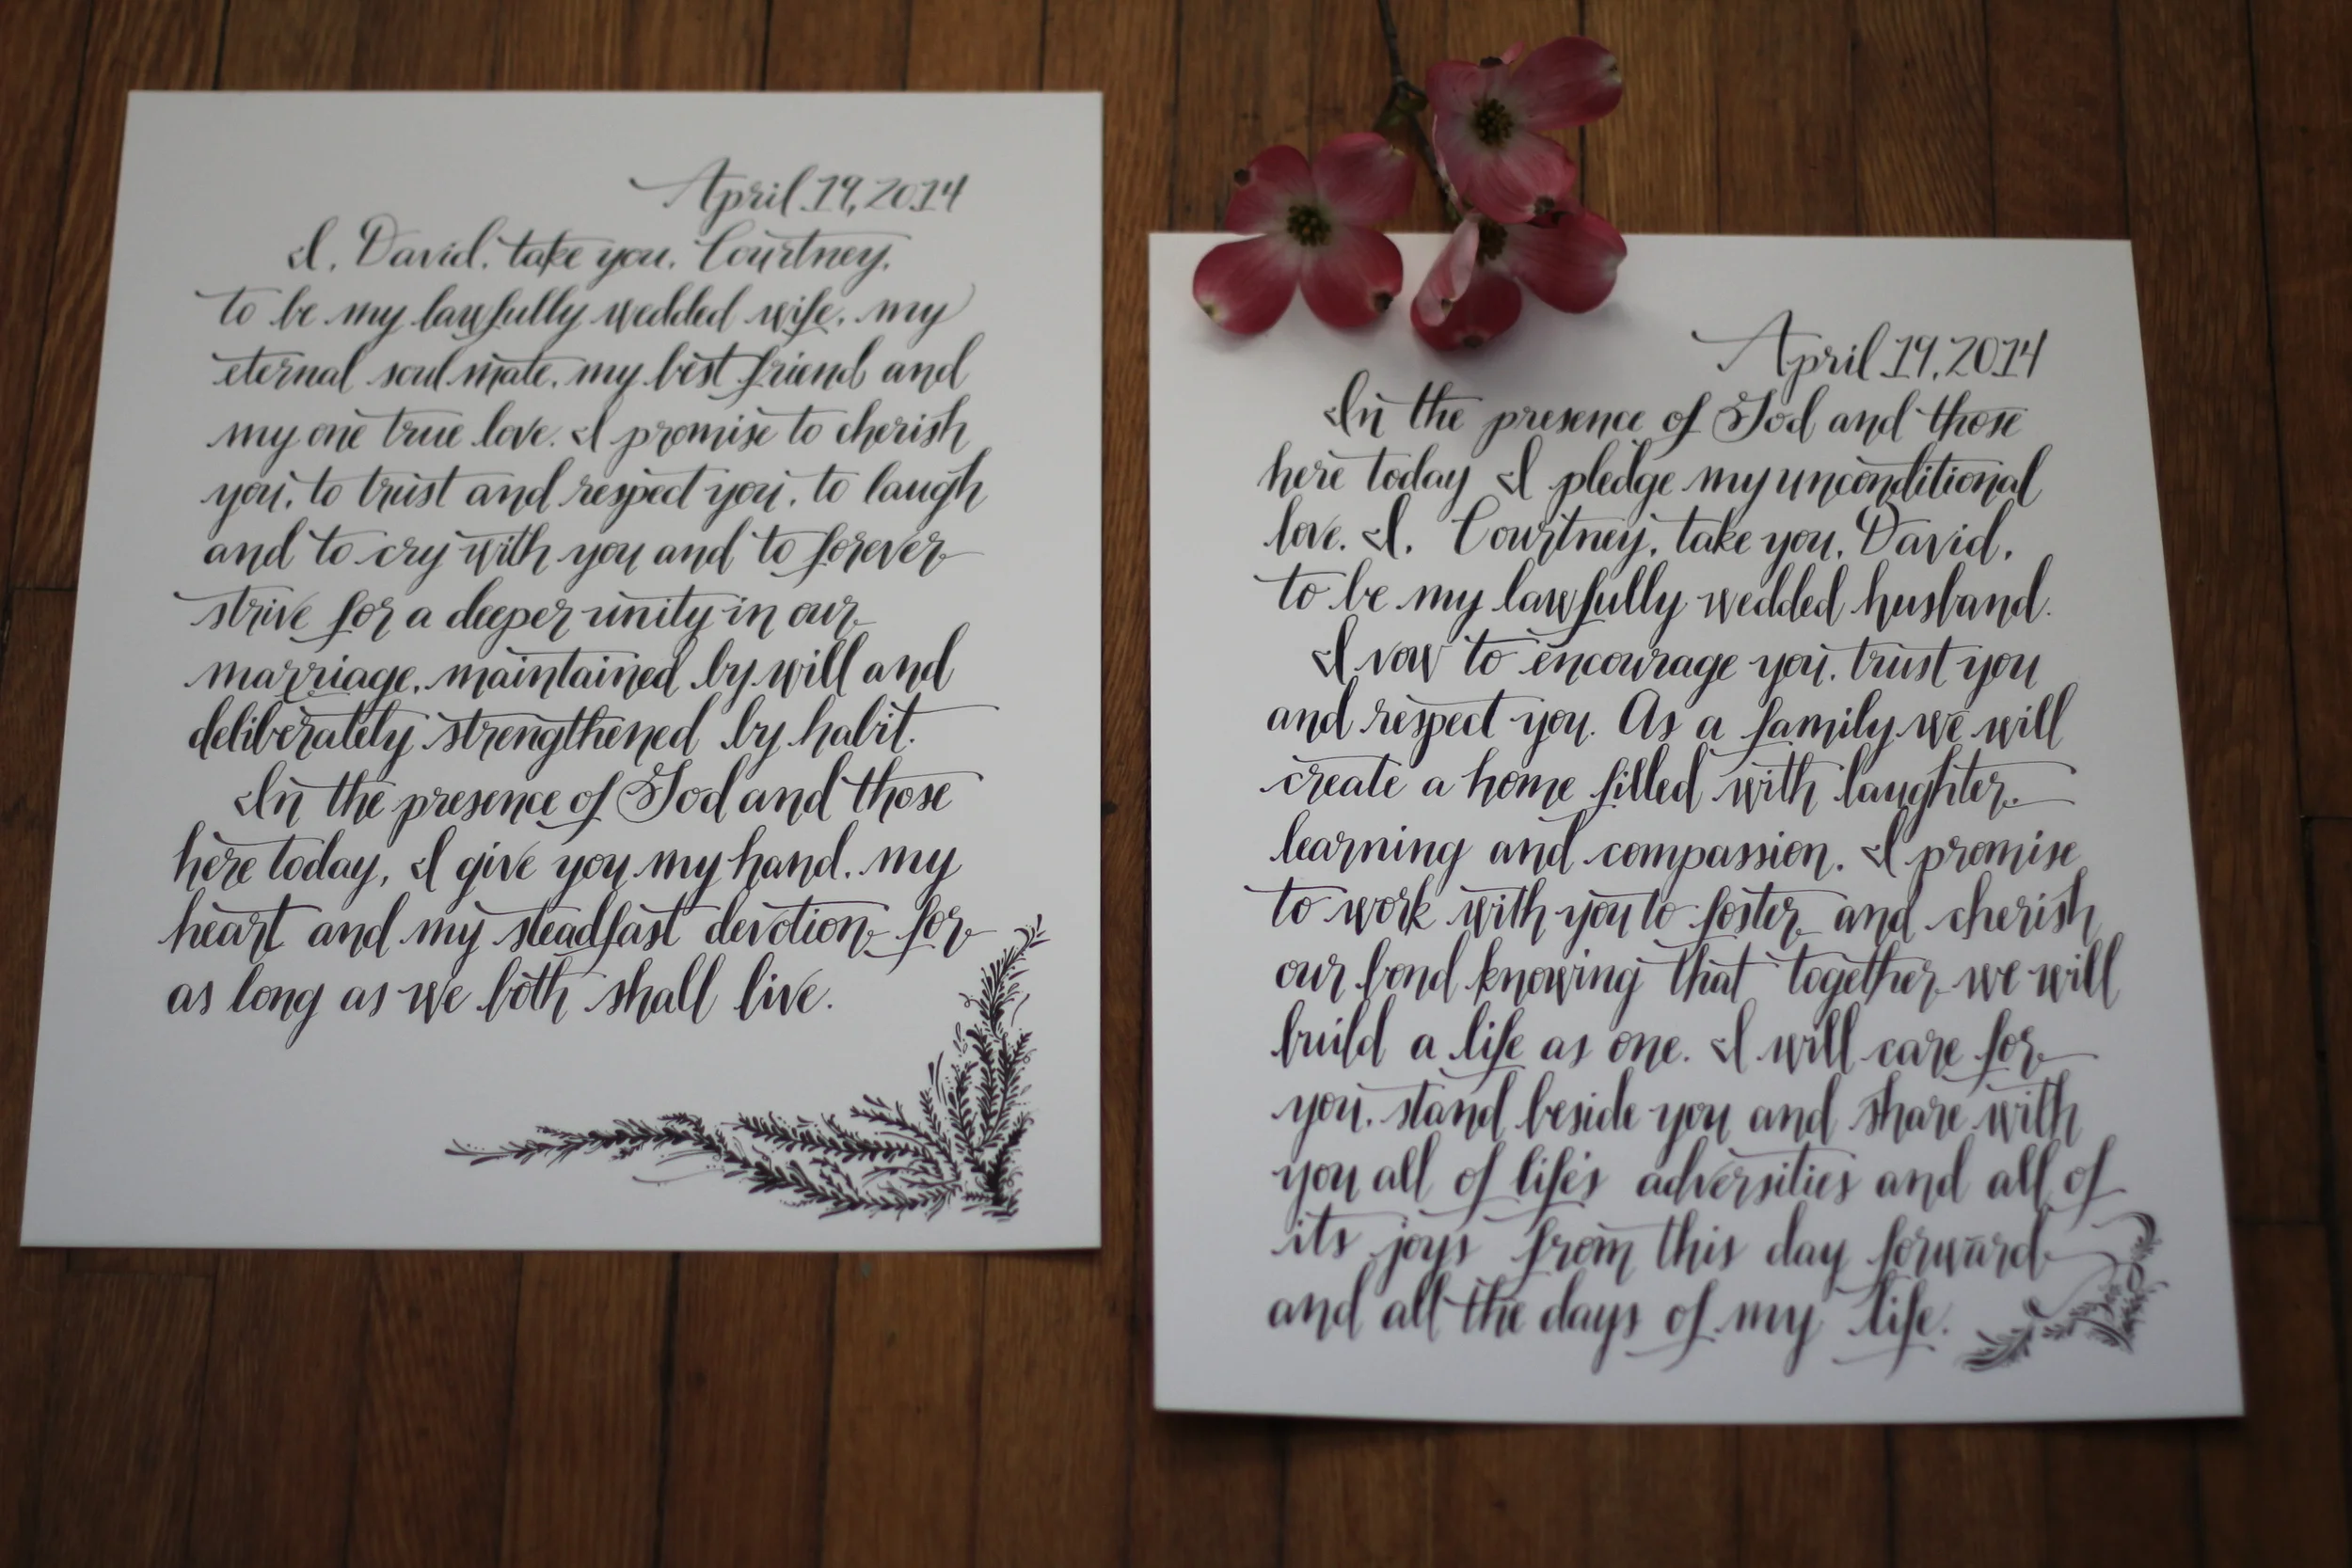 April 19, 2014
I, David, take you, Courtney,
to be my lawfully wedded wife, my
eternal soul mate, my best friend and
my one true love. I promise to cherish
you, to trust and respect you, to laugh
and to cry with you and to forever
strive for a deeper unity in our
marriage, maintained by will and
deliberately strengthened by habit.
In the presence of God and those
here today, I give you my hand, my
heart and my steadfast devotion for
as long as we both shall live.
April 19, 2014
In the presence of God and those
here today I pledge my unconditional
love. I, Courtney, take you, David,
to be my lawfully wedded husband.
I vow to encourage you, trust you
and respect you. As a family we will
create a home filled with laughter,
learning and compassion. I promise
to work with you to foster and cherish
our bond knowing that together we will
build a life as one. I will care for
you, stand beside you and share with
you all of life's adversities and all of
its joys from this day forward
and all the days of my life.